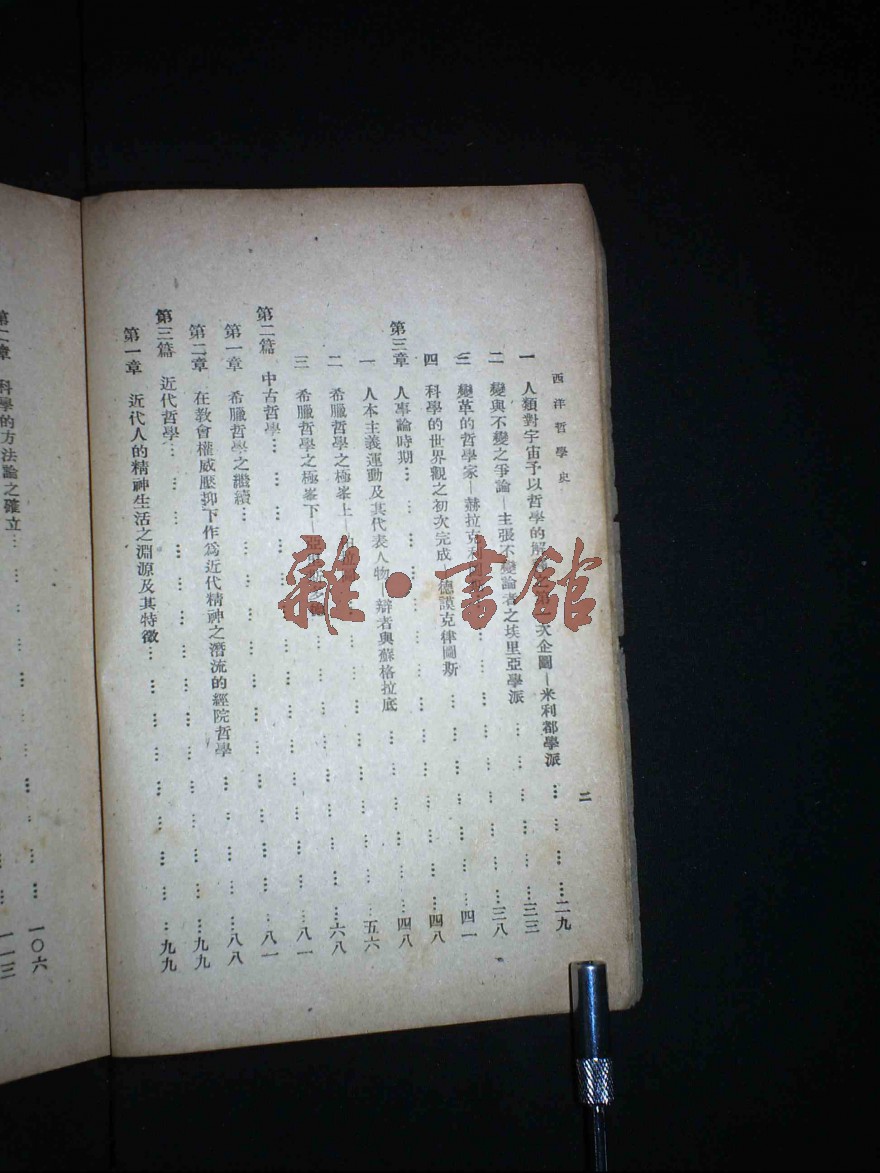 西洋哲學史
二
一 人類對宇宙予以哲學的解 次企圖—米利都學派 … … … …二九
二 變與不變之爭論—主張不變論者之埃里亞學派 … … … … … …三三
三 變革的哲學家—赫拉克利 … … … … … … …三八
四 科學的世界觀之初次完成—德謨克律圖斯 … … … … … …四一
第三章 人事論時期… … … … … … … … …四八
一 人本主義運動及其代表人物—辯者與蘇格拉底 … … … … … …四八
二 希臘哲學之極峯上— … … … … … … …五六
三 希臘哲學之極峯下— … … … … … … …六八
第二篇 中古哲學… … … … … … … … …八一
第一章 希臘哲學之繼續… … … … … … … …八一
第二章 在教會權威壓抑下作爲近代精神之潛流的經院哲學 … … … … …八八
第三篇 近代哲學… … … … … … … … …九九
第一章 近代人的精神生活之淵源及其特徵… … … … … … …九九
第二章 科學的方法論之確立… … … … … … … …一〇六
一一三
雜·書館